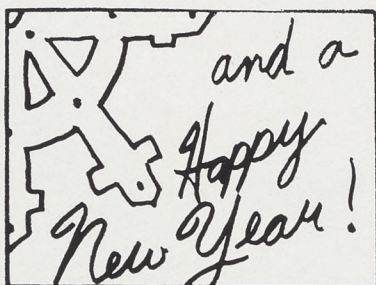 and a
Happy
New Year!